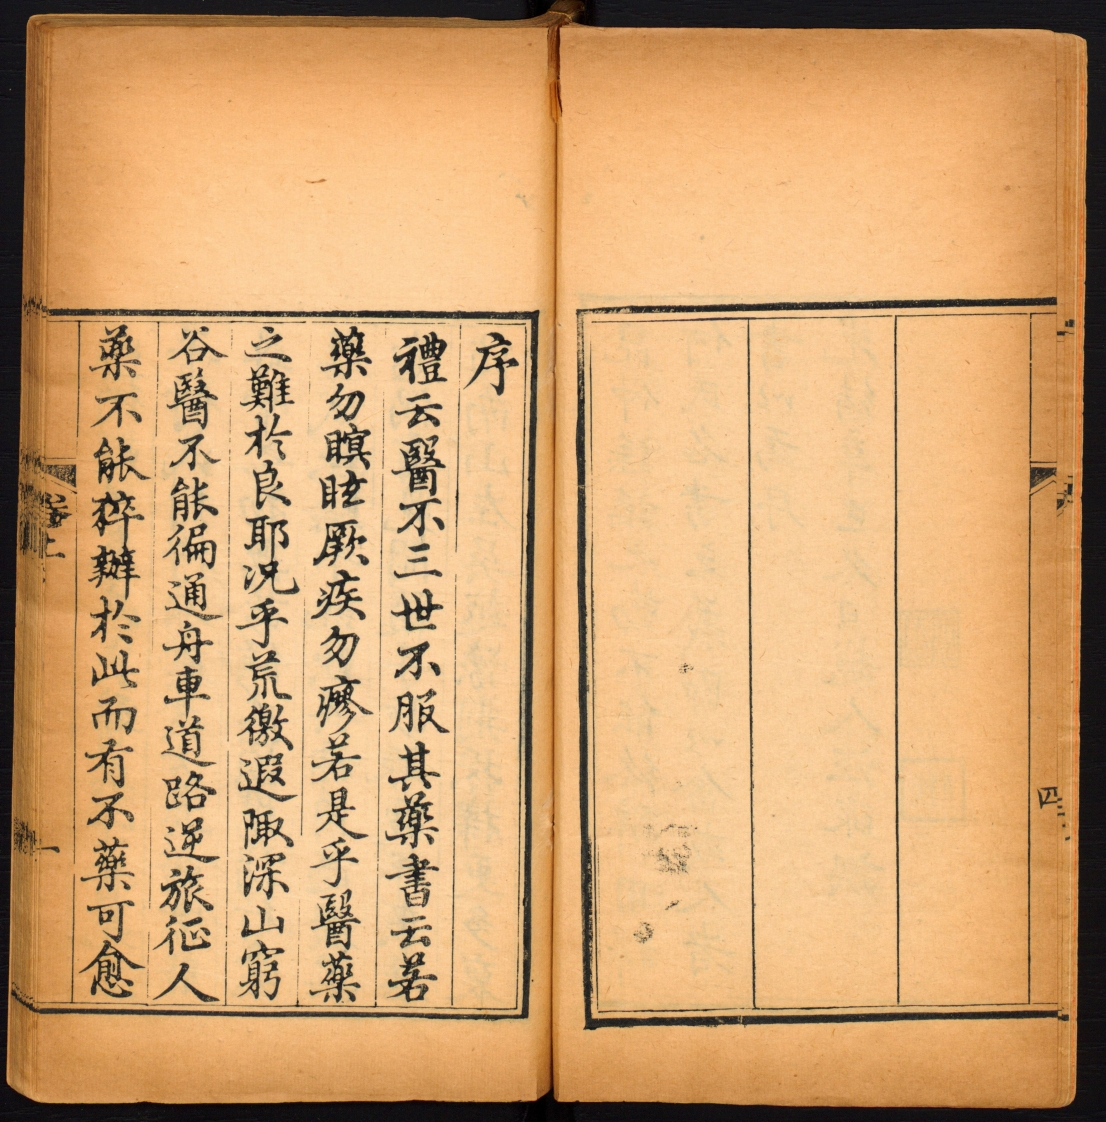 四
序
禮云醫不三世不服其藥書云若
藥勿瞑眩厥疾勿瘳若是乎醫藥
之難於良耶况乎荒徼遐陬深山窮
谷醫不能徧通舟車道路逆旅征人
藥不能猝辦於此而有不藥可愈
卷上
一